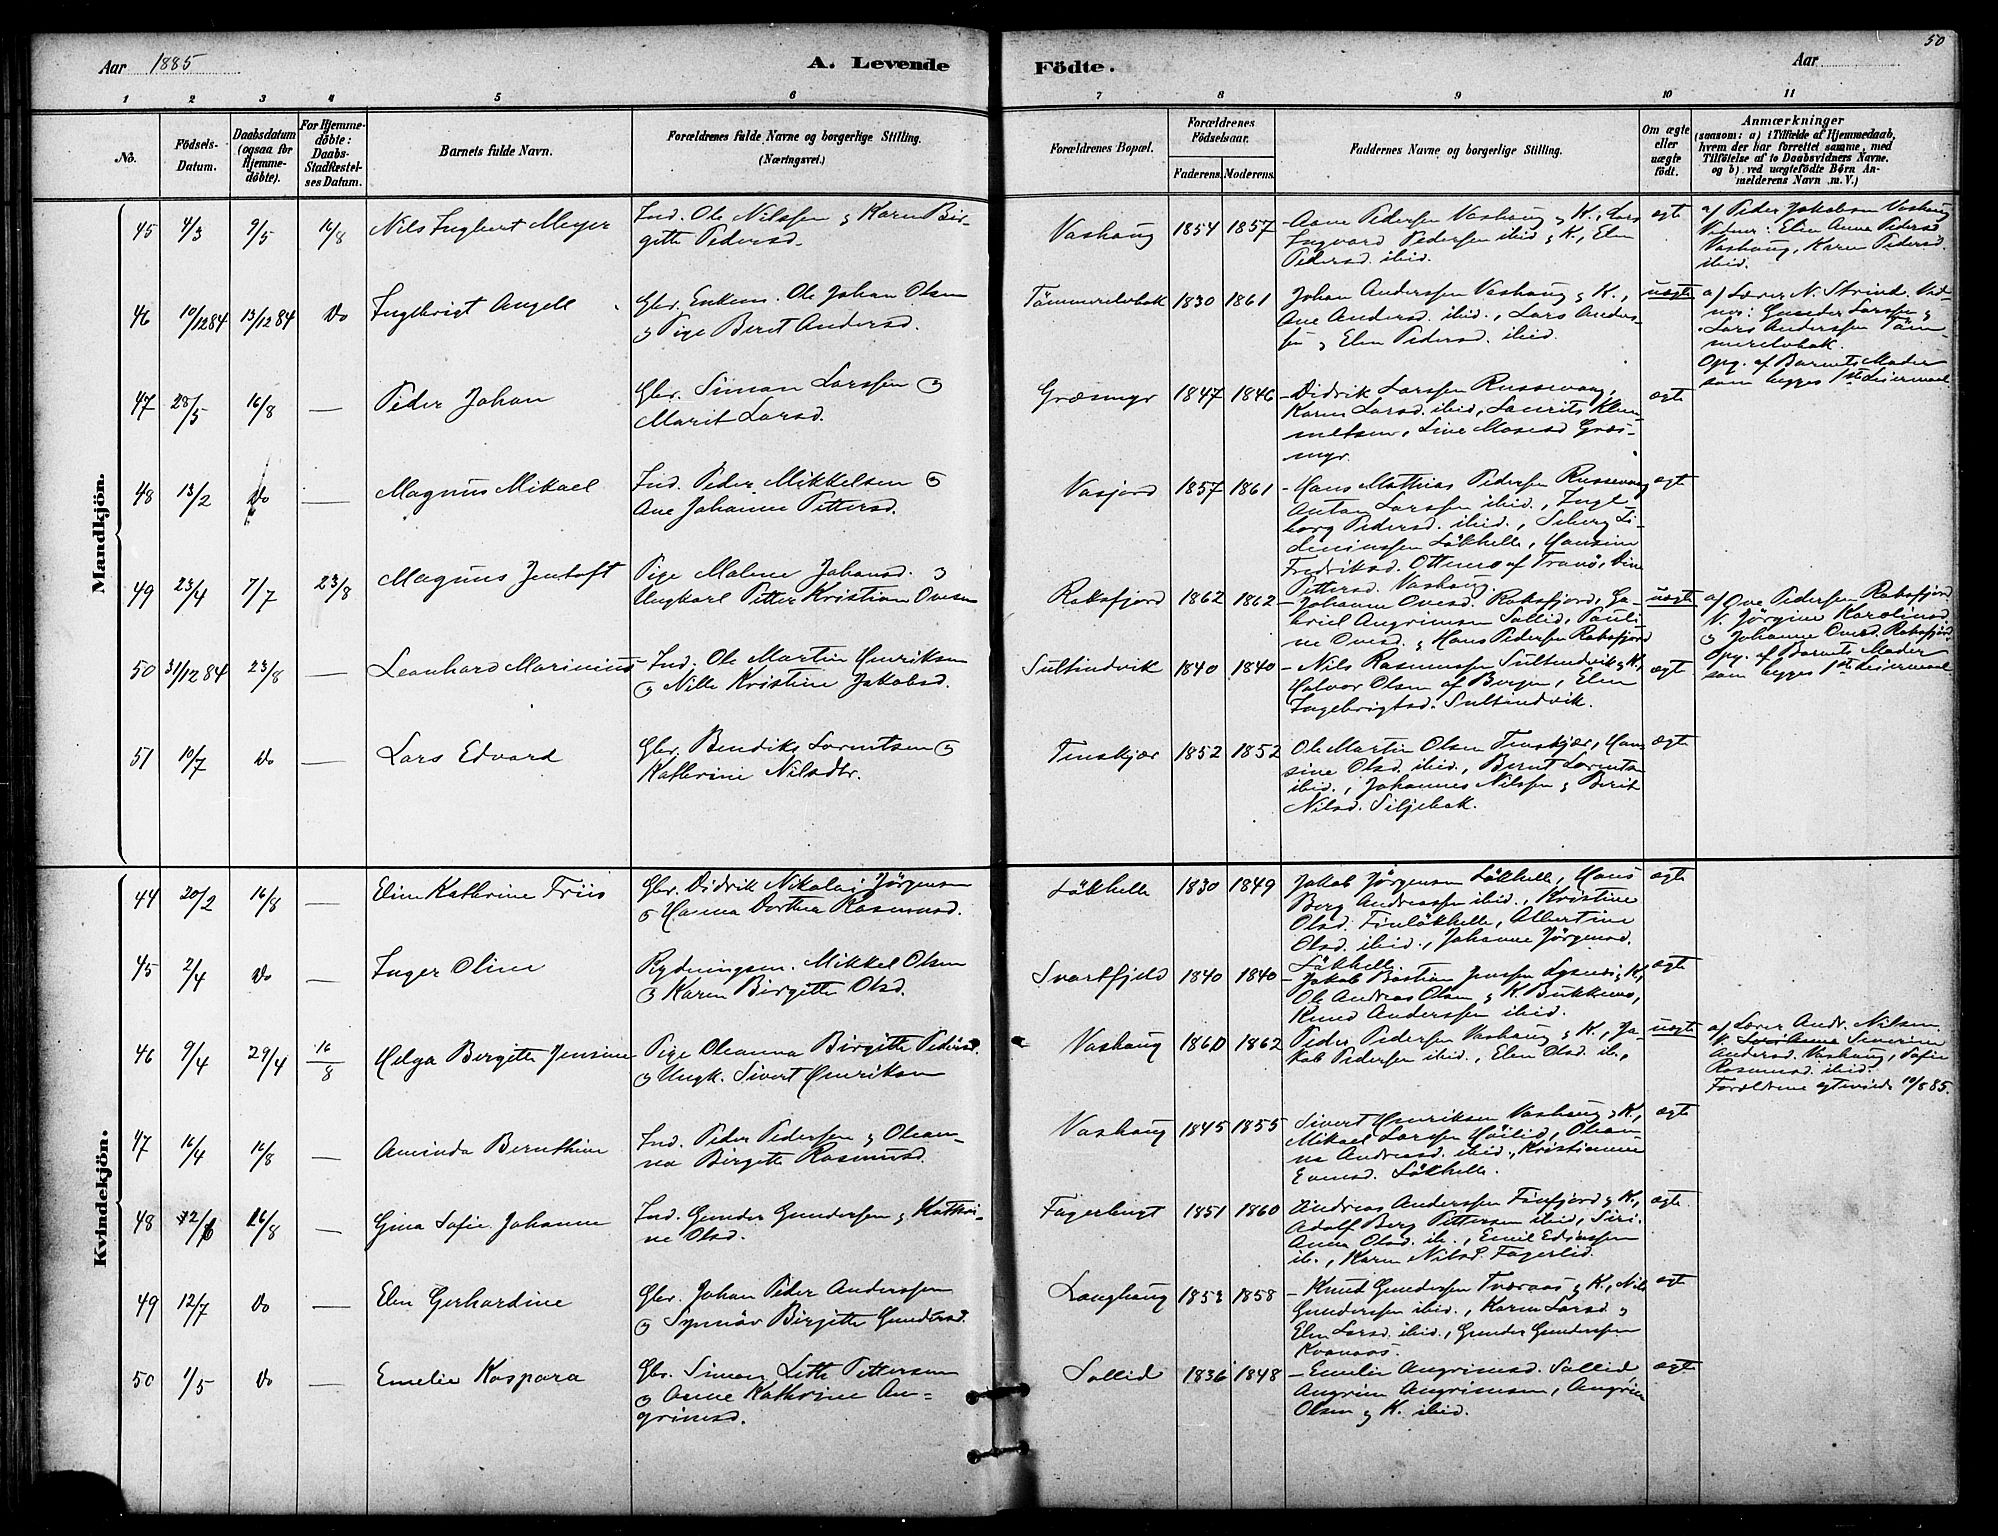 50
Aar 1885
A. Levende
Födte.
Aar
1 2 3 4 5 6 7 8 9 10 11
No.
Födsels-Datum.
Daabsdatum (ogsaa for Hjemme-döbte).
For Hjemme-döbte: Daabs-Stadfæstel-ses Datum.
Barnets fulde Navn.
Forældrenes fulde Navne og borgerlige Stilling.
(Næringsvei.)
Forældrenes Bopæl.
Forældrenes Födselsaar.
Faderens. Moderens.
Faddernes Navne og borgerlige Stilling.
Om ægte eller uægte födt.
Anmærkninger
(saasom: a) i Tilfælde af Hjemmedaab,
hvem der har forrettet samme, med
Tilföielse af to Daabsvidners Navne.
og b) ved uægtefödte Börn An-
melderens Navn m. V.)
Mandkjön.
45 4/3 9/5 16/8 Nils Ingbert Meyer
Ind. Ole Nilssen & Karen Bir-
gitte Pedersd.
Vashaug 1854 1857
Aane Pedersen Vashaug & K., Lars
Ingvard Pedersen ibid & K., Elen
Pedersd. ibid.
ægte
af Peder Jakobsen Vashaug
Vidner: Elen Anne Pedersd
Vashaug, Karen Pedersd.
ibid.
46 10/12 84 13/12 84 Do Ingebrigt Angell
Gbr. Enkem. Ole Johan Olsen
& Pige Berit Andersd.
Tömmerelvbak 1830 1861
Johan Anderssen Vashaug & K.,
Ane Andersd. ibid., Lars Anders-
sen & Elen Pedersd. ibid.
uægte
af Lærer N. Strind. Vid-
ner: Gunder Larssen &
Lars Anderssen Töm-
merelvbak.
Opg. af Barnets Moder
som begges 1ste Leiermaal
47 28/5 16/8 — Peder Johan
Gbr. Simon Larssen &
Marit Larsd.
Græsmyr 1847 1846
Didrik Larssen Russevaag,
Karen Larsd. ibid, Laurits Klem-
metsen, Line Mosesd Græs-
myr.
ægte
48 13/2 Do — Magnus Mikael
Ind. Peder Mikkelsen &
Ane Johanne Pettersd.
Vasjord 1857 1861
Hans Mathias Pedersen Russevaag
Anton Larssen ibid., Inge-
borg Pedersd. ibid.,
Lökhelle, Hansine
Fredriksd. af Tranö, Line
Pettersd. Vashaug.
ægte
49 23/4 7/7 23/8 Magnus Jentoft
Pige Malene Johansd. &
Ungkarl Petter Kristian Ovesen
Roksfjord 1862 1862
Johanne Ovesd. Roksfjord, Ga-
briel Angrimsen Sollid, Pauli-
ne Ovesd. & Hans Pedersen Roksfjord
uægte
af Ove Pedersen Roksfjord
V. Jörgine Karolinesd
& Johanne Ovesd. Roksfjord.
Opg. af Barnets Moder
som begges 1ste Leiermaal
50 31/12 84 23/8 — Leonhard Marinius
Ind. Ole Martin Henriksen
& Nille Kristine Jakobsd.
Sultindvik 1840 1840
Nils Rasmussen Sultindvik & K,
Halvor Olsen af Bergen, Elen
Ingebrigtsd. Sultindvik.
ægte
51 10/7 Do — Lars Edvard
Gbr. Bendiks Lorentsen &
Kathrine Nilsdtr.
Finskjær 1852 1852
Ole Martin Olsen Finskjær, Han-
sine Olsd. ibid., Bernt Lorents
ibid., Johannes Nilssen & Berit
Nilsd. Siljebak.
ægte
Kvindekjön.
44 20/2 16/8 — Eline Kathrine Friis
Gbr. Didrik Nikolai Jörgensen
& Hanna Dorthea Rasmusd.
Lökhelle 1830 1849
Jakob Jörgensen Lökhelle, Hans
Berg Andreassen ibid., Kristine
Olsd. Finlökhelle, Albertine
Olsd. ibid., Johanne Jörgensd.
Lökhelle.
ægte
45 2/4 Do — Inger Oline
Rydningsm. Mikkel Olsen
& Karen Birgitte Olsd.
Svartfjeld 1840 1840
Jakob Bastian Jenssen & K,
Ole Andreas Olsen & K.
Knud Anderssen ibid.
ægte
46 9/4 29/4 16/8 Helga Birgitte Jensine
Pige Oleanna Birgitte Pedersd.
& Ungk. Sivert Henriksen
Vashaug 1860 1862
Peder Pedersen Vashaug & K., Ja-
kob Pedersen ibid., Elen Olsd. ib.,
uægte
af Lærer Andr. Nilsen
V. Severine
Andersd. Vashaug, Sofie
Rasmusd. ibid.
Forældrene ægteviede 10/8 85.
47 16/4 16/8 — Aminda Bernthine
Ind. Peder Pedersen & Olean-
na Birgitte Rasmusd.
Vashaug 1845 1855
Sivert Henriksen Vashaug & K.,
Mikael Larssen Höilid, Olean-
na Andreasd. ibid., Kristianne
Evensd. Lökhelle.
ægte
48 12/6 16/8 — Gina Sofie Johanne
Ind. Gunder Gundersen & Kathri-
ne Olsd.
Fagerbugt 1851 1860
Andreas Anderssen Finfjord & K.,
Adolf Berg Pettersen ibid, Siri
Anna Olsd. ib., Emil Edinssen
ib., Karen Nilsd. Fagerlid.
ægte
49 12/7 Do — Elen Gerhardine
Gbr. Johan Peder Anderssen
& Synnöv Birgitte Gundersd.
Langhaug 1853 1858
Knud Gundersen Tværaas & K, Nils
Gunderssen ibid., Karen Larsd &
Elen Larsd. ibid., Gunder Gunderssen
Kvanaas.
ægte
50 1/5 Do — Emelie Kaspara
Gbr. Simon Leth Pettersen
& Anne Kathrine An-
grimsd.
Sollid 1836 1848
Emelie Angrimsd. Sollid
Angrim Angrimsen, Angrim
Olsen & K. ibid.
ægte